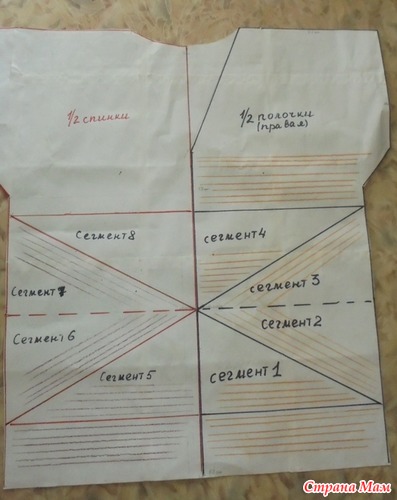 1/2 спинки
1/2 полочки
(правая)
Сегмент 8
сегмент 4
Сегмент 7
сегмент 3
Сегмент 6
сегмент 2
Сегмент 5
сегмент 1
Страна Мам